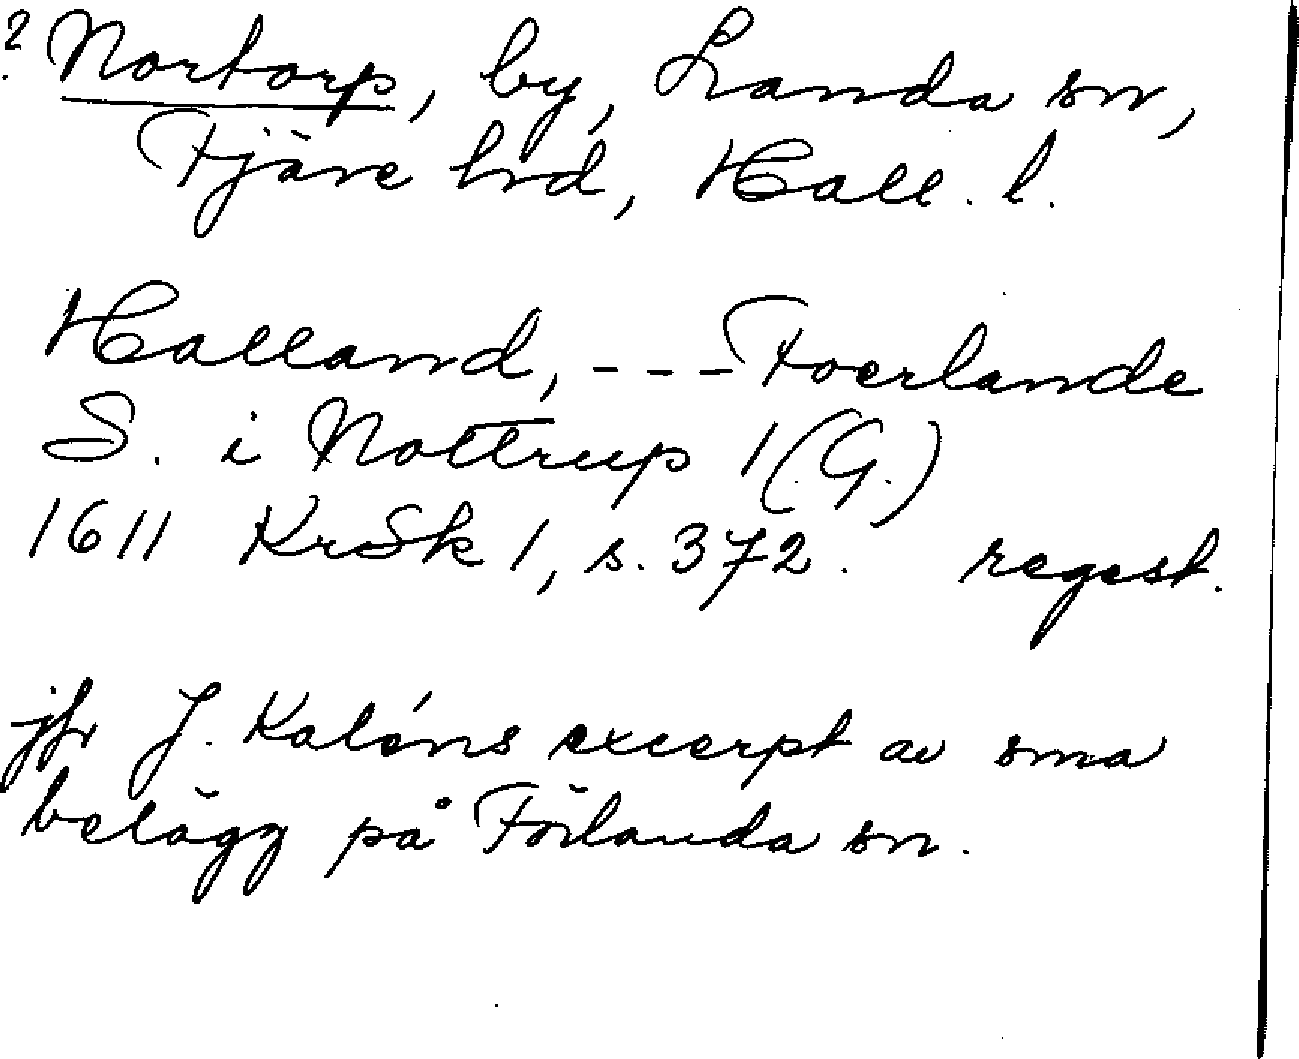 ? Nortorp, by, Landa sn,
Fjäre hrd, Hall. l.
Halland, --- Foerlande
S. i Nottrup 1 (G.)
1611 KrSk 1, s. 372. regest.
jfr J. Kaléns excerpt av sma
belägg på Förlanda sn.